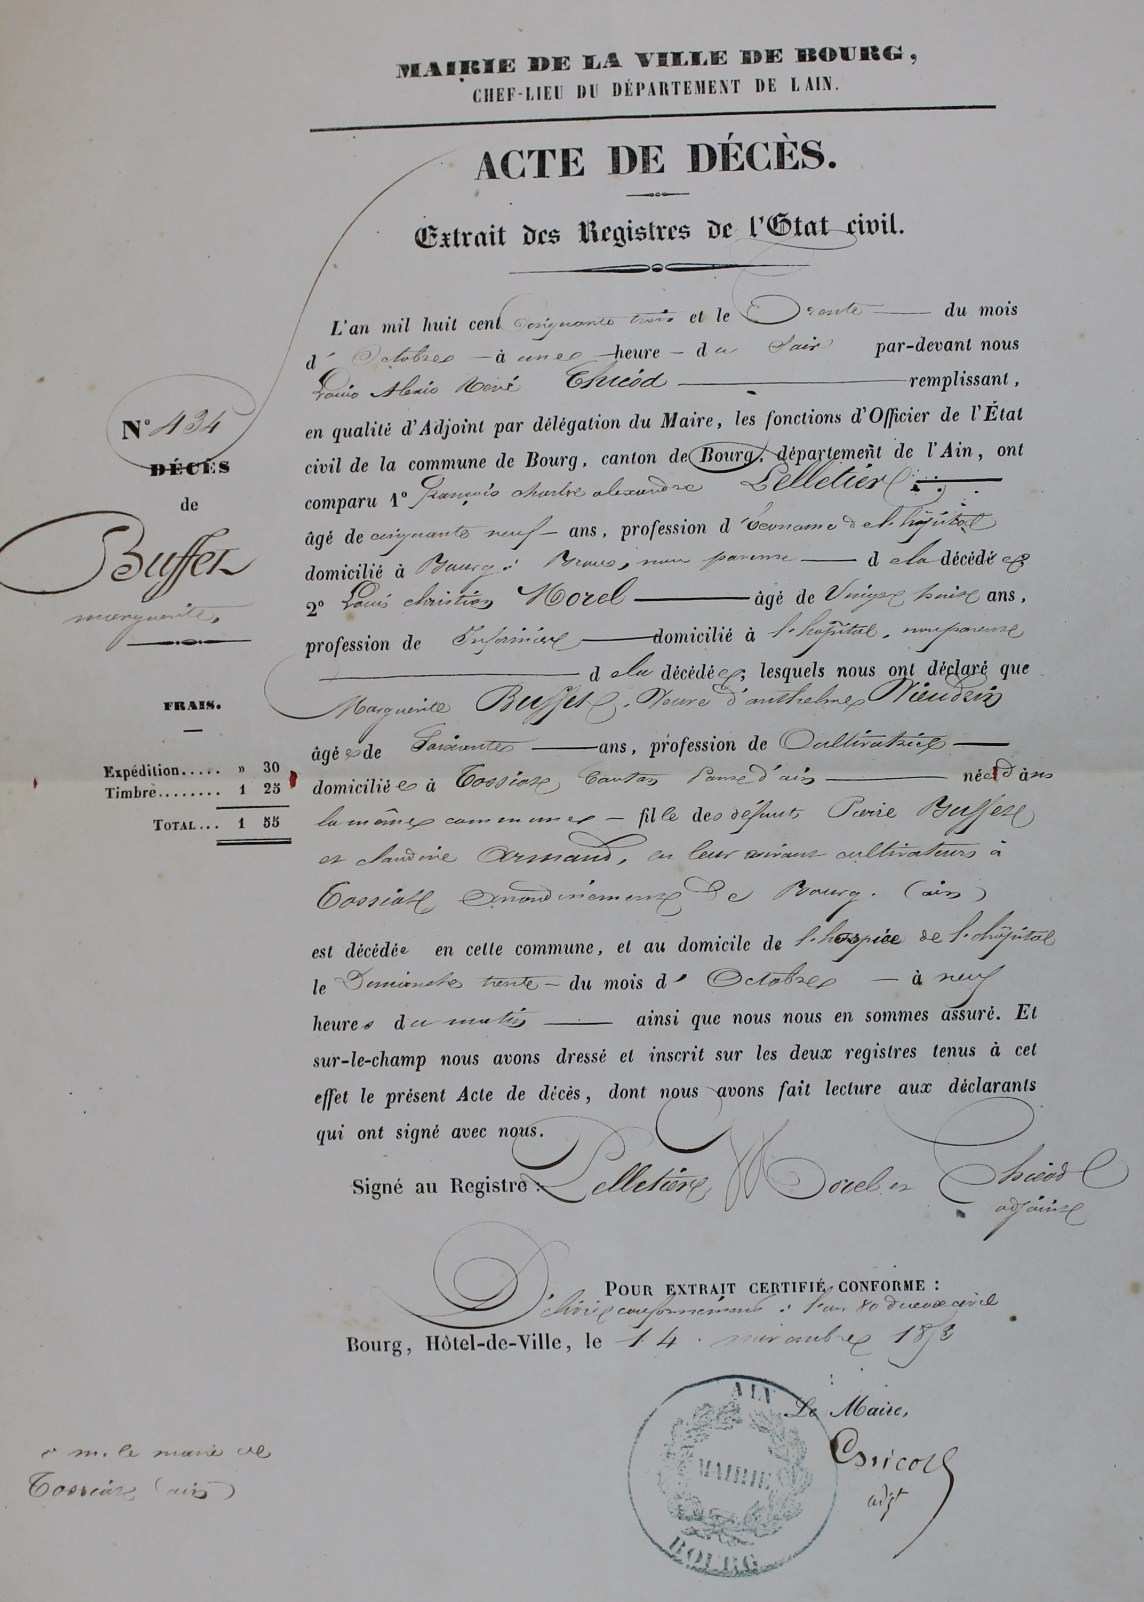 MAIRIE DE LA VILLE DE BOURG,
CHEF-LIEU DU DÉPARTEMENT DE L AIN.
ACTE DE DÉCÈS.
Extrait des Registres de l'Etat civil.
L'an mil huit cent Cinquante trois et le Trente du mois
d' Octobre à une heure du Soir par-devant nous
Louis Alexis Thiéod remplissant,
en qualité d'Adjoint par délégation du Maire, les fonctions d'Officier de l'État
civil de la commune de Bourg, canton de Bourg, département de l'Ain, ont
comparu 1° françois charles alexandre Pelletier
âgé de cinquante neuf ans, profession d'Econome de l'hôpital
domicilié à Bourg, non parent de la décédée
2° Louis christian Morel âgé de Vingt huit ans,
profession de Infirmier domicilié à l'hôpital, non parent
de la décédée; lesquels nous ont déclaré que
Marguerite Buffet, Veuve d'anthelme
âgée de Soixante ans, profession de Cultivatrice
domiciliée à Tossiat Canton Pont d'ain née dans
la même commune fille des défunts Pierre Buffet
et claudine Armand, en leur vivant cultivateurs à
Tossiat arrondissement de Bourg. (ain)
est décédée en cette commune, et au domicile de l'hospice de l'hôpital
le Dimanche trente du mois d' Octobre à neuf
heures du matin ainsi que nous nous en sommes assuré. Et
sur-le-champ nous avons dressé et inscrit sur les deux registres tenus à cet
effet le présent Acte de décès, dont nous avons fait lecture aux déclarants
qui ont signé avec nous.
Signé au Registre: Pelletier, Morel et Thiéod
adjoint
POUR EXTRAIT CERTIFIÉ CONFORME :
Délivré conformément à l'art 80 du code civil
Bourg, Hôtel-de-Ville, le 14 novembre 1853
Le Maire,
adjt
AIN
MAIRIE
BOURG
N° 434
DÉCÈS
de
Buffet
marguerite,
FRAIS.
Expédition..... » 30
Timbre........ 1 25
TOTAL... 1 55
à m. le maire de
Tossiat (ain)